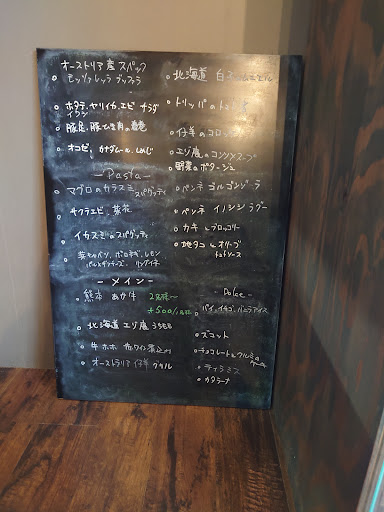 オーストリア産 スペック
モッツァレッラ ブッファラ
ホタテ、ヤリイカ、エビ サラダ
豚足、豚ひき肉の
オコゼ、カナダムール、しめじ
北海道 白子の
トリッパのトマト
仔羊のコロッケ
エゾ鹿のコンソメスープ
野菜のポタージュ
-Pasta-
マグロのカラスミ スパゲッティ
サクラエビ、菜花
イカスミのスパゲッティ
レモン
リングイネ
ペンネ ゴルゴンゾーラ
ペンネ イノシシ ラグー
カキとブロッコリー
地タコとオリーブ
トマトソース
-メイン-
熊本 あか牛 2名様~
+500/1名様
北海道 エゾ鹿
牛ホホ 赤ワイン煮込み
オーストラリア 仔羊 グリル
-Dolce-
パイ、イチゴ、バニラアイス
ズコット
チョコレートとクルミの
ティラミス
カタラーナ